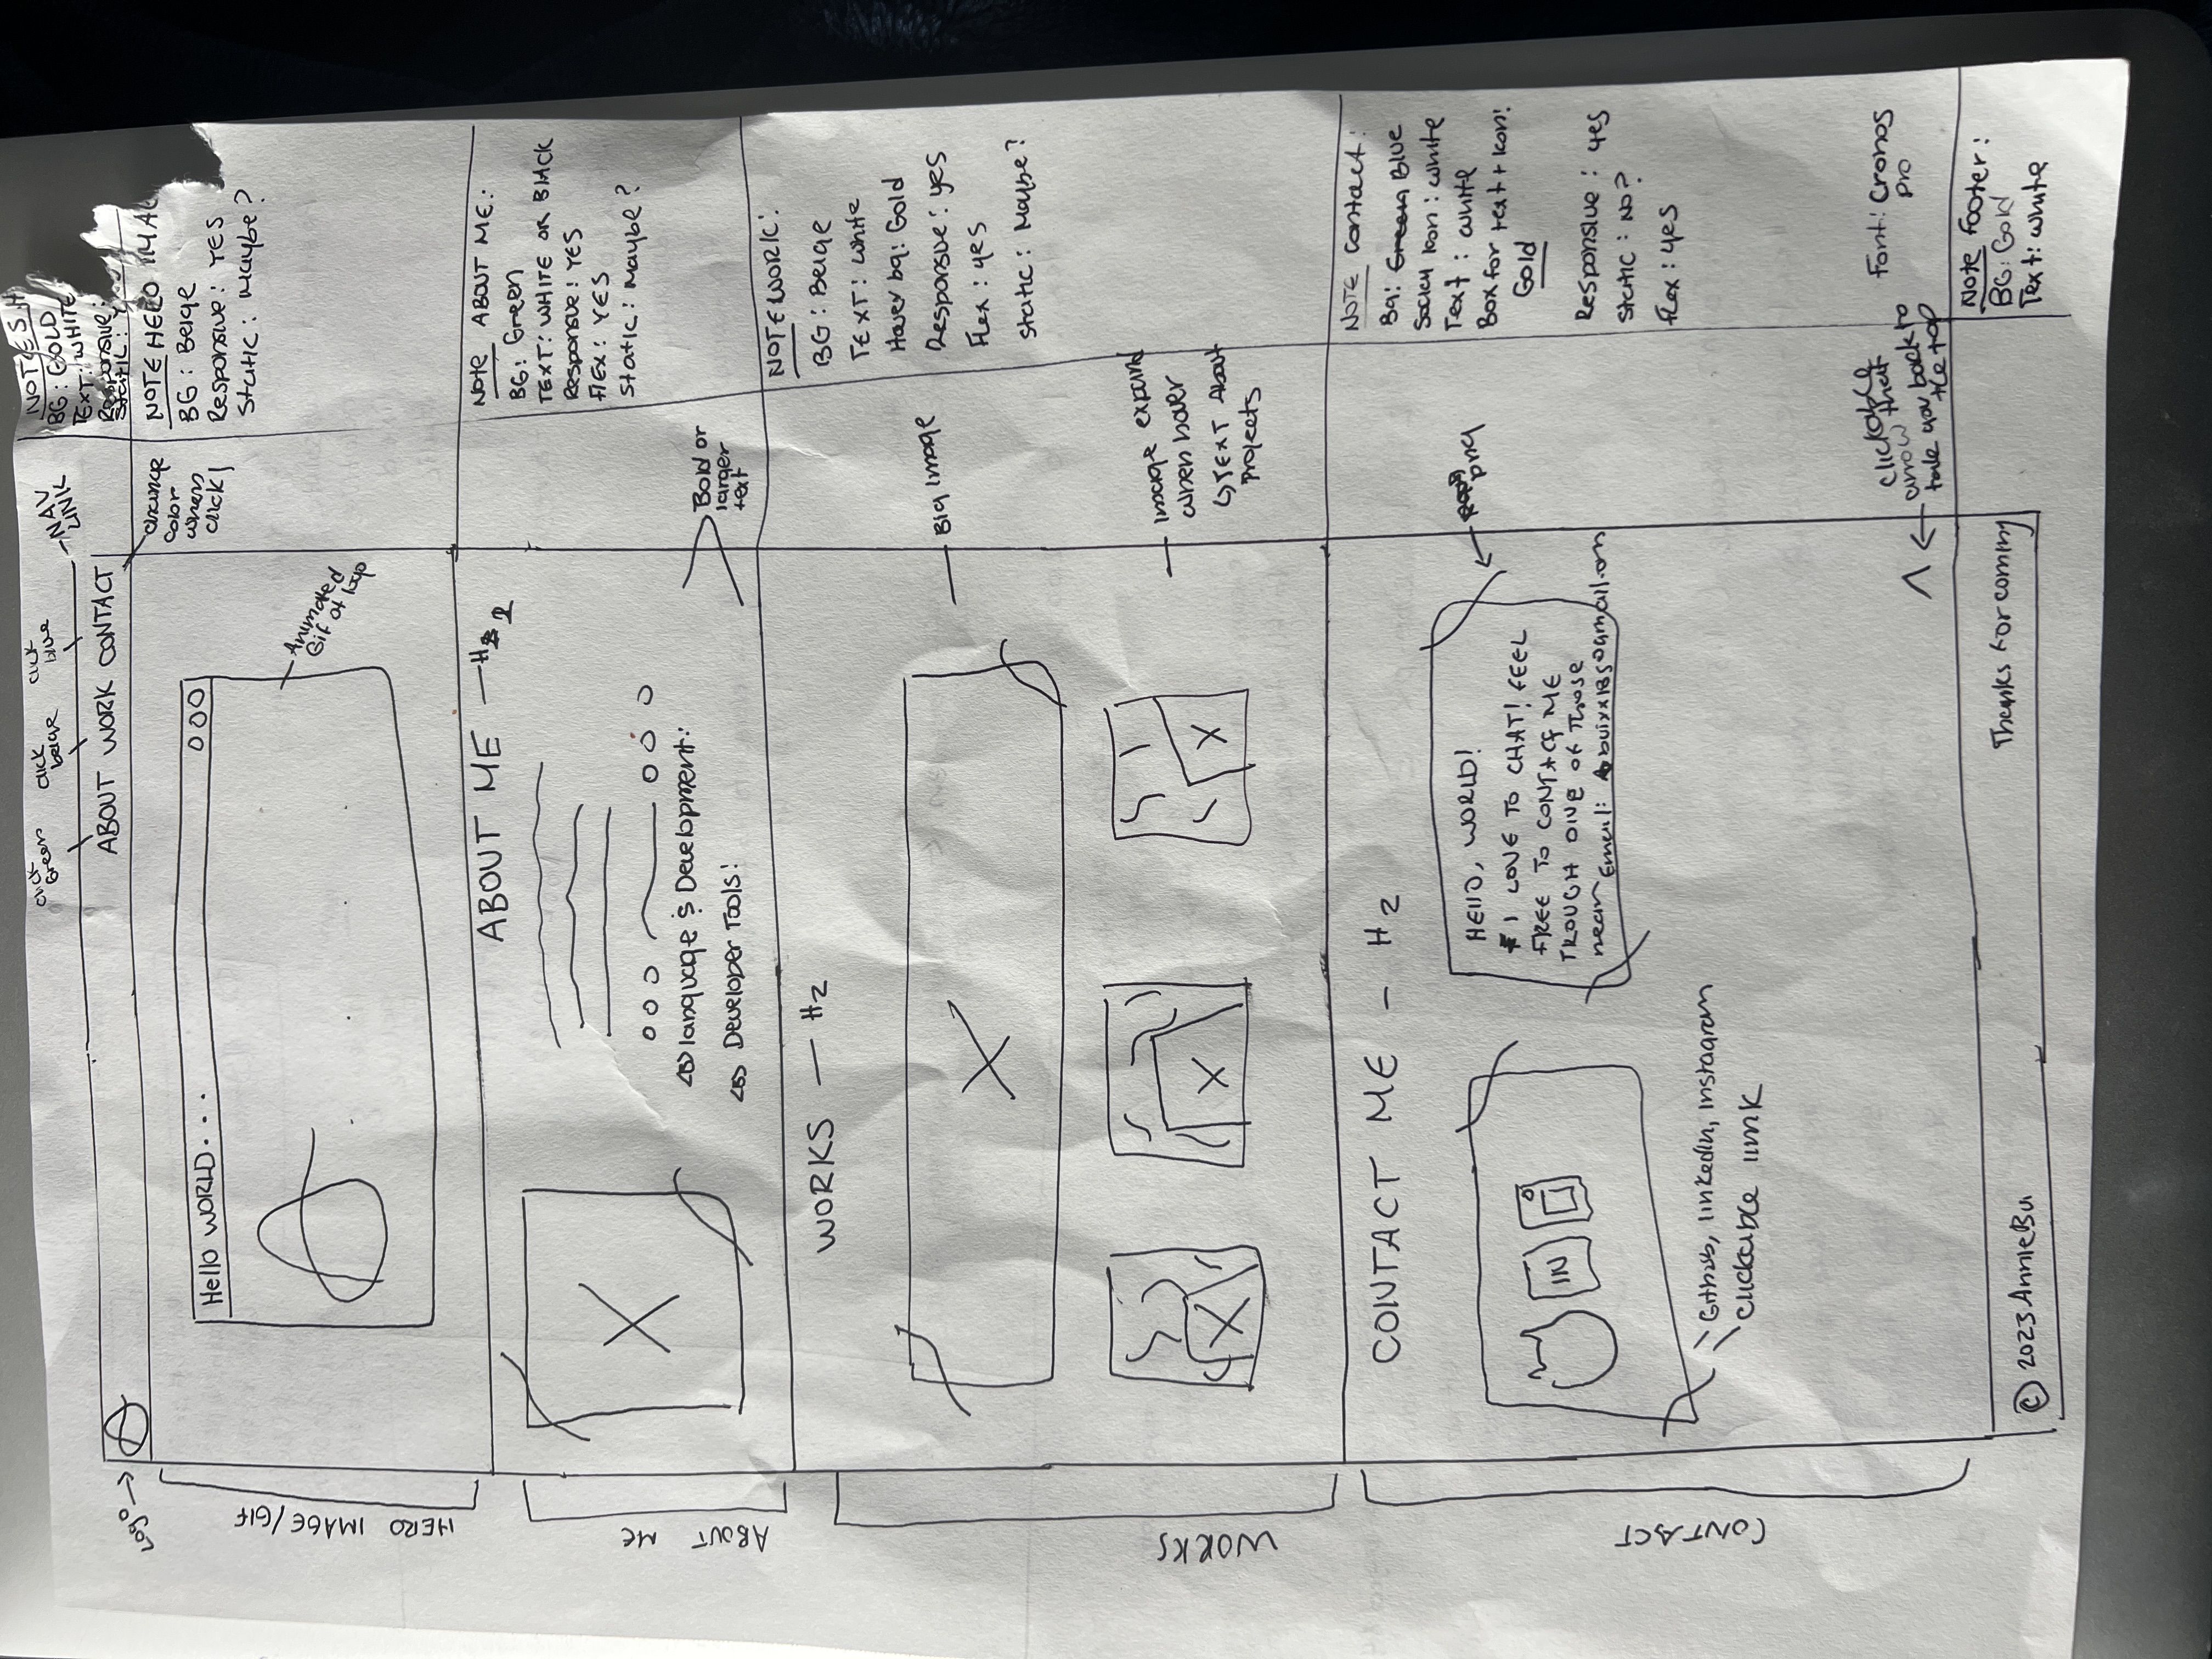 click Green
click beige
click blue
NAV LINK
Logo
ABOUT WORK CONTACT
change
color
when
click!
NOTES H
BG: GOLD
TEXT: WHITE
Responsive:
Static: Y
HERO IMAGE/GIF
Hello WORLD...
Animated
Gif of logo
NOTE HERO IMA
BG: Beige
Responsive: YES
Static: Maybe?
ABOUT ME
ABOUT ME — H2
<B> language & Development:
<B> Developer Tools:
Bold or
larger
text
Note ABOUT ME:
BG: Green
TEXT: WHITE OR BlACK
Responsue: YES
FlEX: YES
Static: Maybe?
WORKS
WORKS — H2
Big Image
Image expand
when hover
TEXT About
Projects
NOTE WORK:
BG: Beige
TEXT: white
Hover bg: Gold
Responsue: yes
Flex: yes
static: Maybe?
CONTACT
CONTACT ME - H2
IN
HEllO, WORLD!
I LOVE TO CHAT! FEEL
FREE TO CONTACT ME
TROUGH ONE OF THOSE
near Email:
png
Github, linkedIn, instagram
clickable link
NOTE Contact:
Bg: Green Blue
Social Icon: white
Text: white
Box for text + Icon:
Gold
Responsive: yes
Static: No?
flex: yes
clickable
arrow that
take you back to
the top
Font: Cronos
Pro
© 2023 Annie Bui
Thanks for coming
Note Footer:
BG: Gold
Text: white